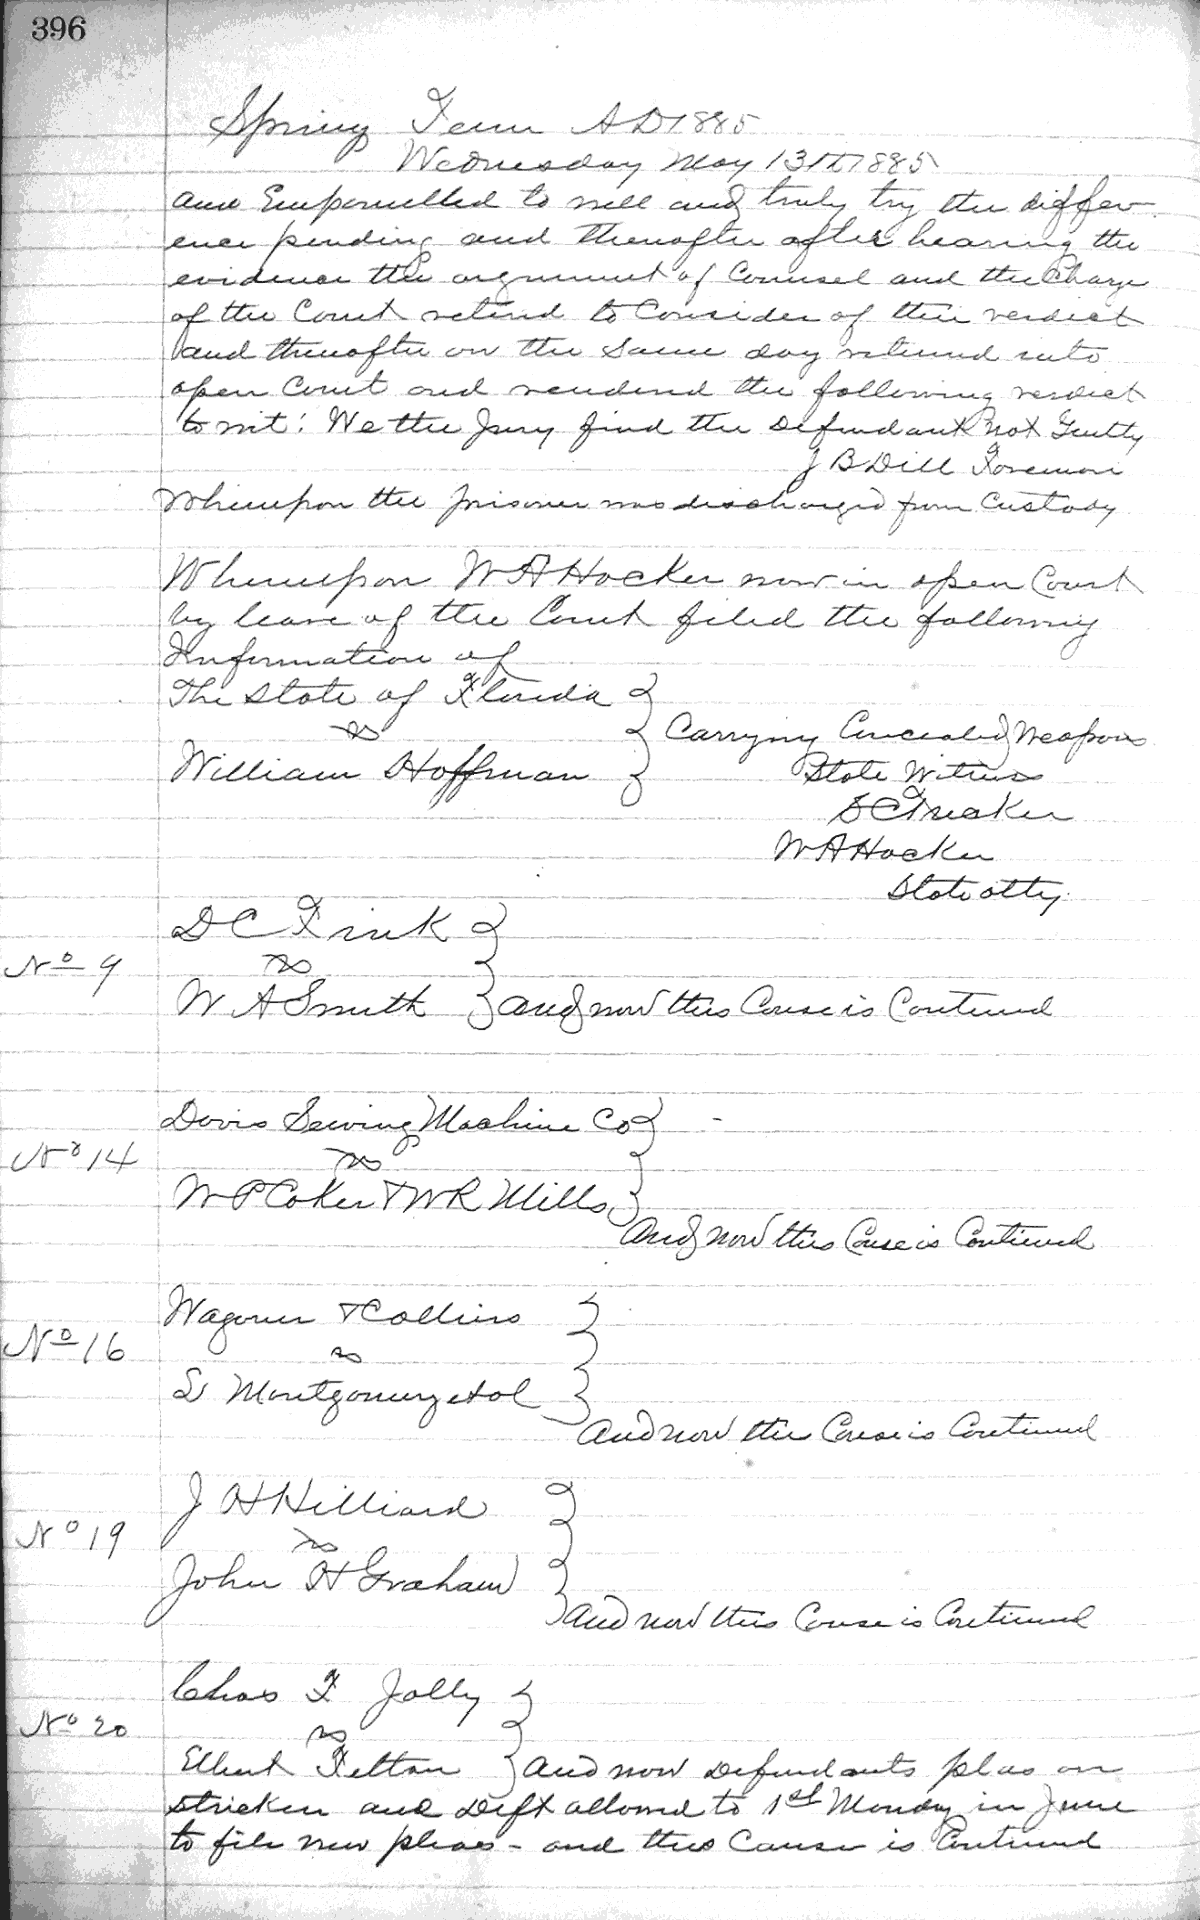 396
Spring Term AD 1885
Wednesday May 13th 1885
and Empanelled to well and truly try the differ-
ence pending and thereafter after hearing the
evidence the argument of Counsel and the Charge
of the Court retired to Consider of their verdict
and thereafter on the Same day returned into
open Court and rendered the following verdict
to wit: We the Jury find the Defendant Not Guilty
J B Dill Foreman
Whereupon the prisoner was discharged from Custody
Whereupon W A Hocker now in open Court
by leave of the Court filed the following
Information of
The State of Florida
vs
Carrying Concealed Weapons
William Hoffman
State Witness
W A Hocker
State atty.
D C Fink
No 9
vs
W A Smith and now this Cause is Continued
Davis Sewing Machine Co
No 14
vs
W P Coker & W R Mills
And now this Cause is Continued
Wagoner & Collins
No 16
vs
S Montgomery et al
And now this Cause is Continued
J H Hilliard
No 19
vs
John H Graham
And now this Cause is Continued
Chas F Jolly
No 20
vs
Elbert Felton And now Defendants pleas are
stricken and Deft allowed to 1st Monday in June
to file new pleas - and this Cause is Continued